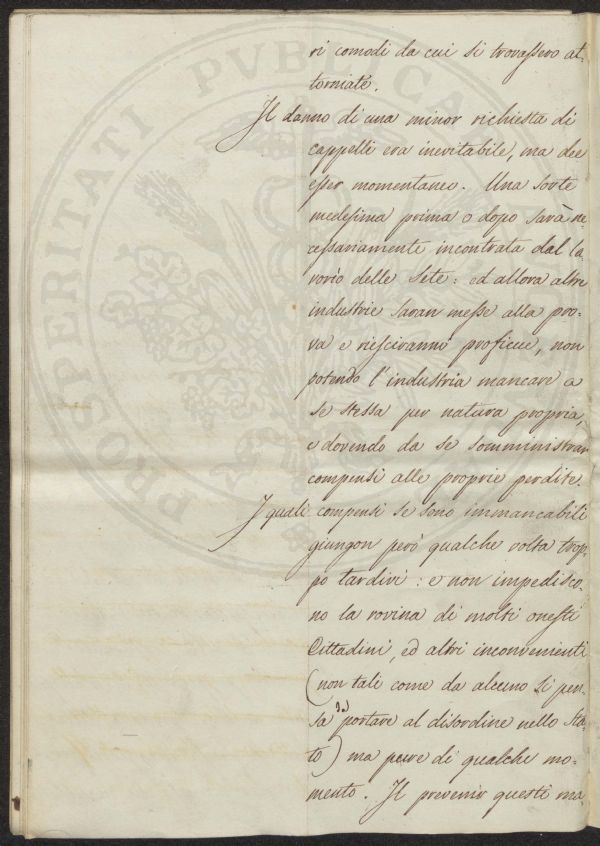 ri comodi da cui si trovassero at-
torniate.
Il danno di una minor richiesta di
cappelli era inevitabile, ma dee
esser momentaneo. Una sorte
medesima prima o dopo sarà ne-
cessariamente incontrata dal la
vorio delle Sete: ed allora altre
industrie saran messe alla pro-
va e riesciranno proficue, non
potendo l'industria mancare a
se stessa per natura propria,
e dovendo da se somministrar
compensi alle proprie perdite.
I quali compensi se sono immancabili
giungon però qualche volta trop-
po tardivi: e non impedisco-
no la rovina di molti onesti
Cittadini, ed altri inconvenienti
(non tali come da alcuno si pen-
sa da portare al disordine nello Sta-
to) ma pure di qualche mo-
mento. Il prevenir questi ma-
PROSPERITATI PVBLICAE